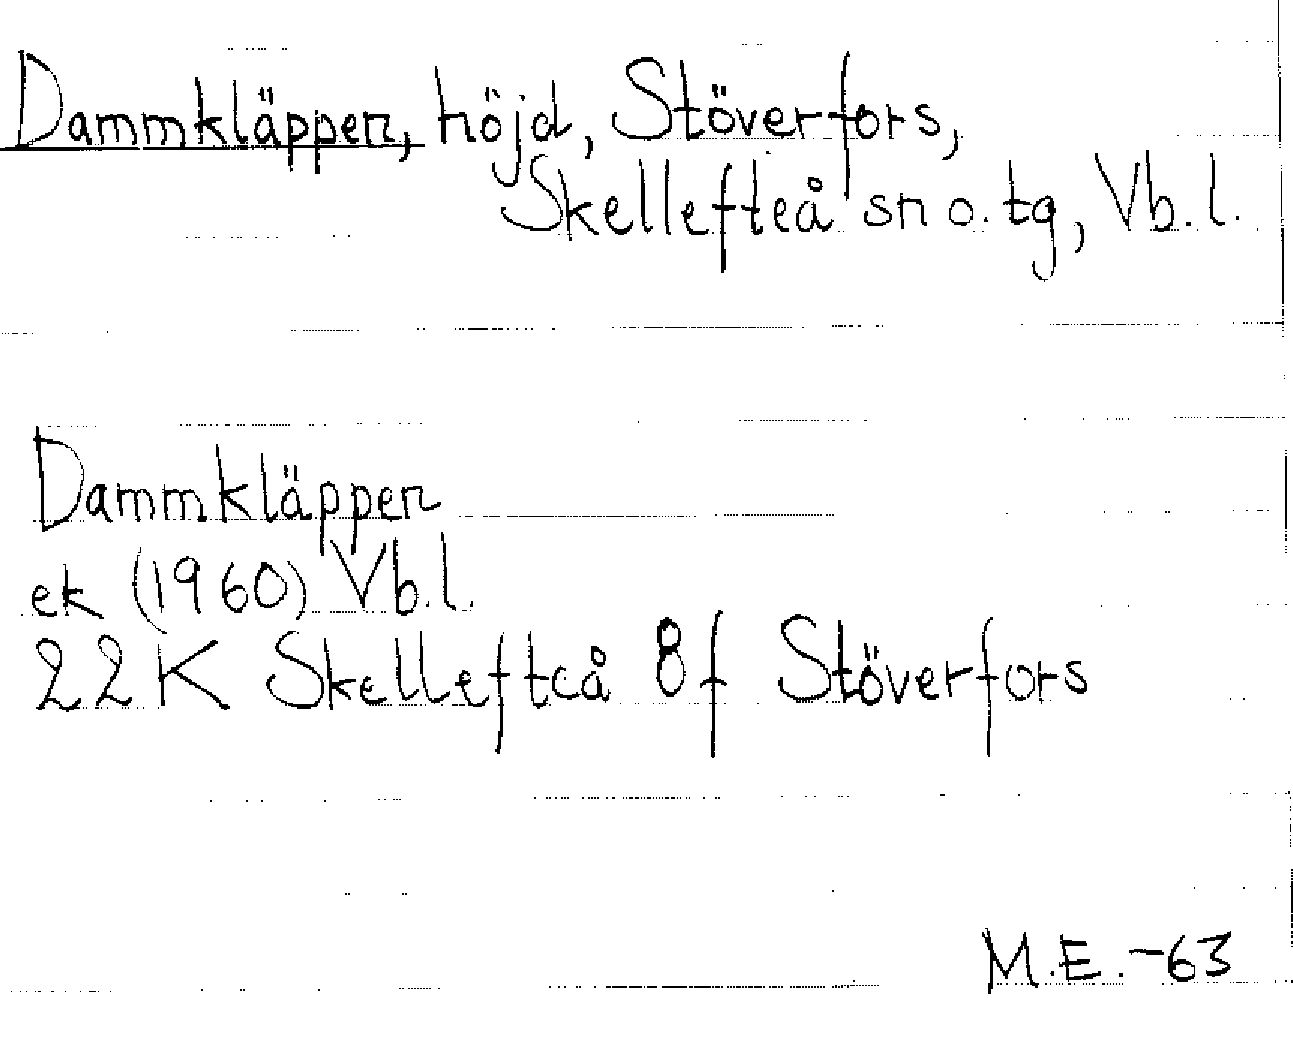 Dammkläppen, höjd, Stöverfors,
Skellefteå sn o. tg, Vb.l.
Dammkläppen
ek (1960) Vb.l.
22 K Skellefteå 8f Stöverfors
M.E. -63